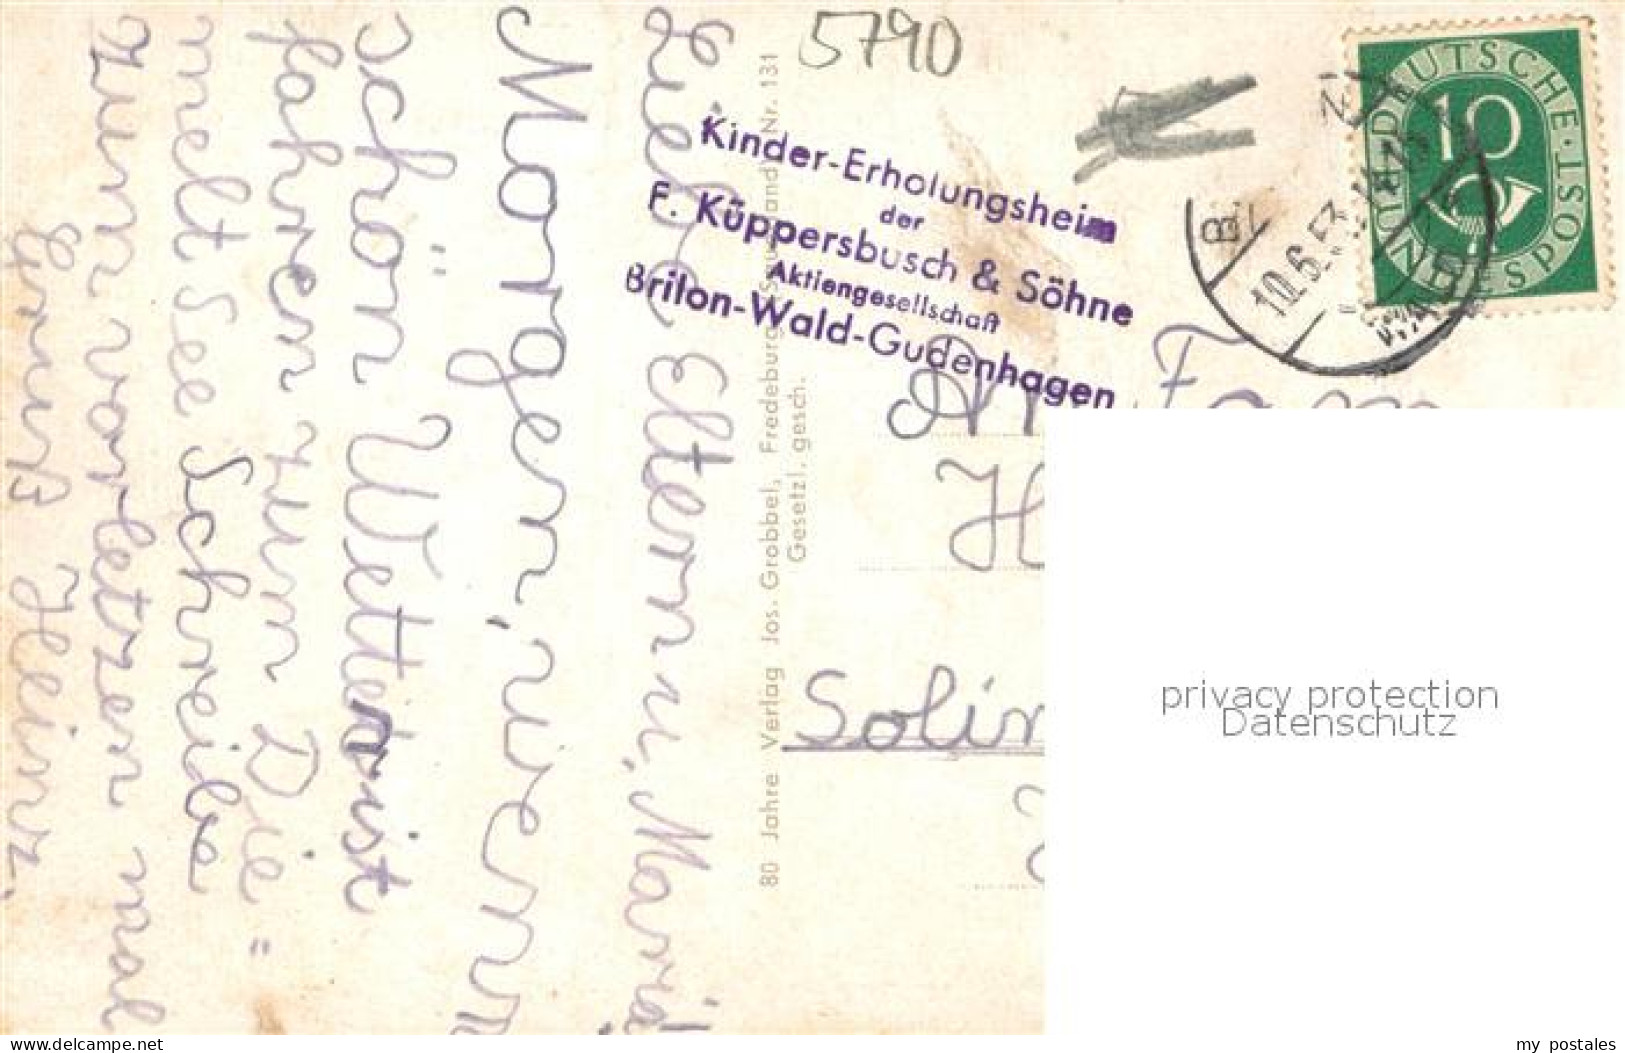 5790
DEUTSCHE BUNDESPOST
10
10.6.53
Kinder-Erholungsheim
der
F. Küppersbusch & Söhne
Aktiengesellschaft
Brilon-Wald-Gudenhagen
Liebe Eltern u. Maria
Morgen, wenn
schön Wetter ist
fahren zum Die=
melt See Schreibe
zum vorletzen mal
Gruß Heinz.
80 Jahre Verlag Jos. Grobbel, Fredeburg Nr. 131
Gesetzl. gesch.
An Fam
H
Solin
privacy protection
Datenschutz
www.delcampe.net
my_postales